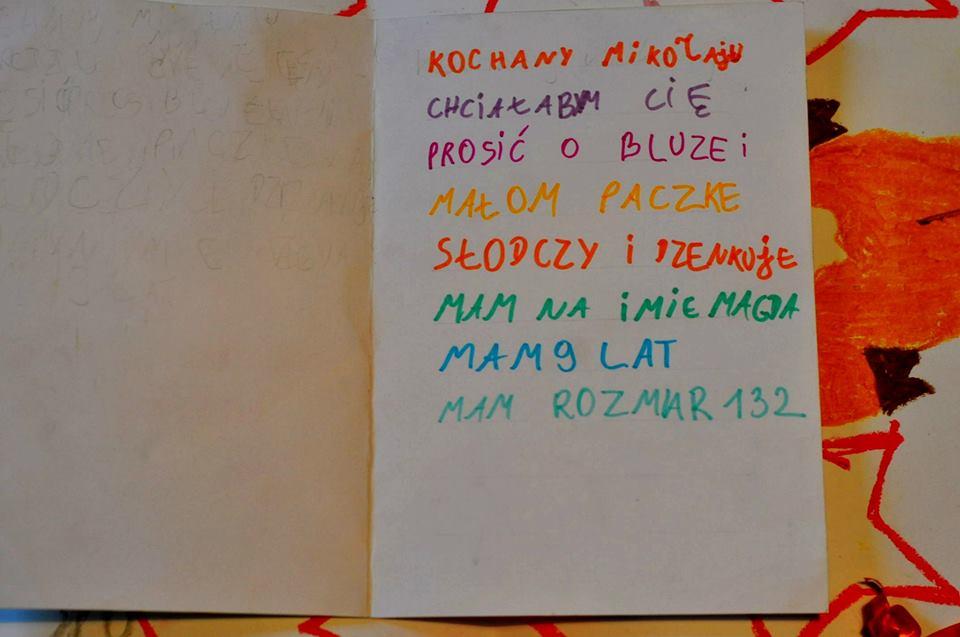 KOCHANY MIKOŁAJU
CHCIAŁABYM CIĘ
PROSIĆ O BLUZE i
MAŁOM PACZKE
SŁODCZY i DZENKUJE
MAM NA iMIE MAGDA
MAM 9 LAT
MAM ROZMIAR 132